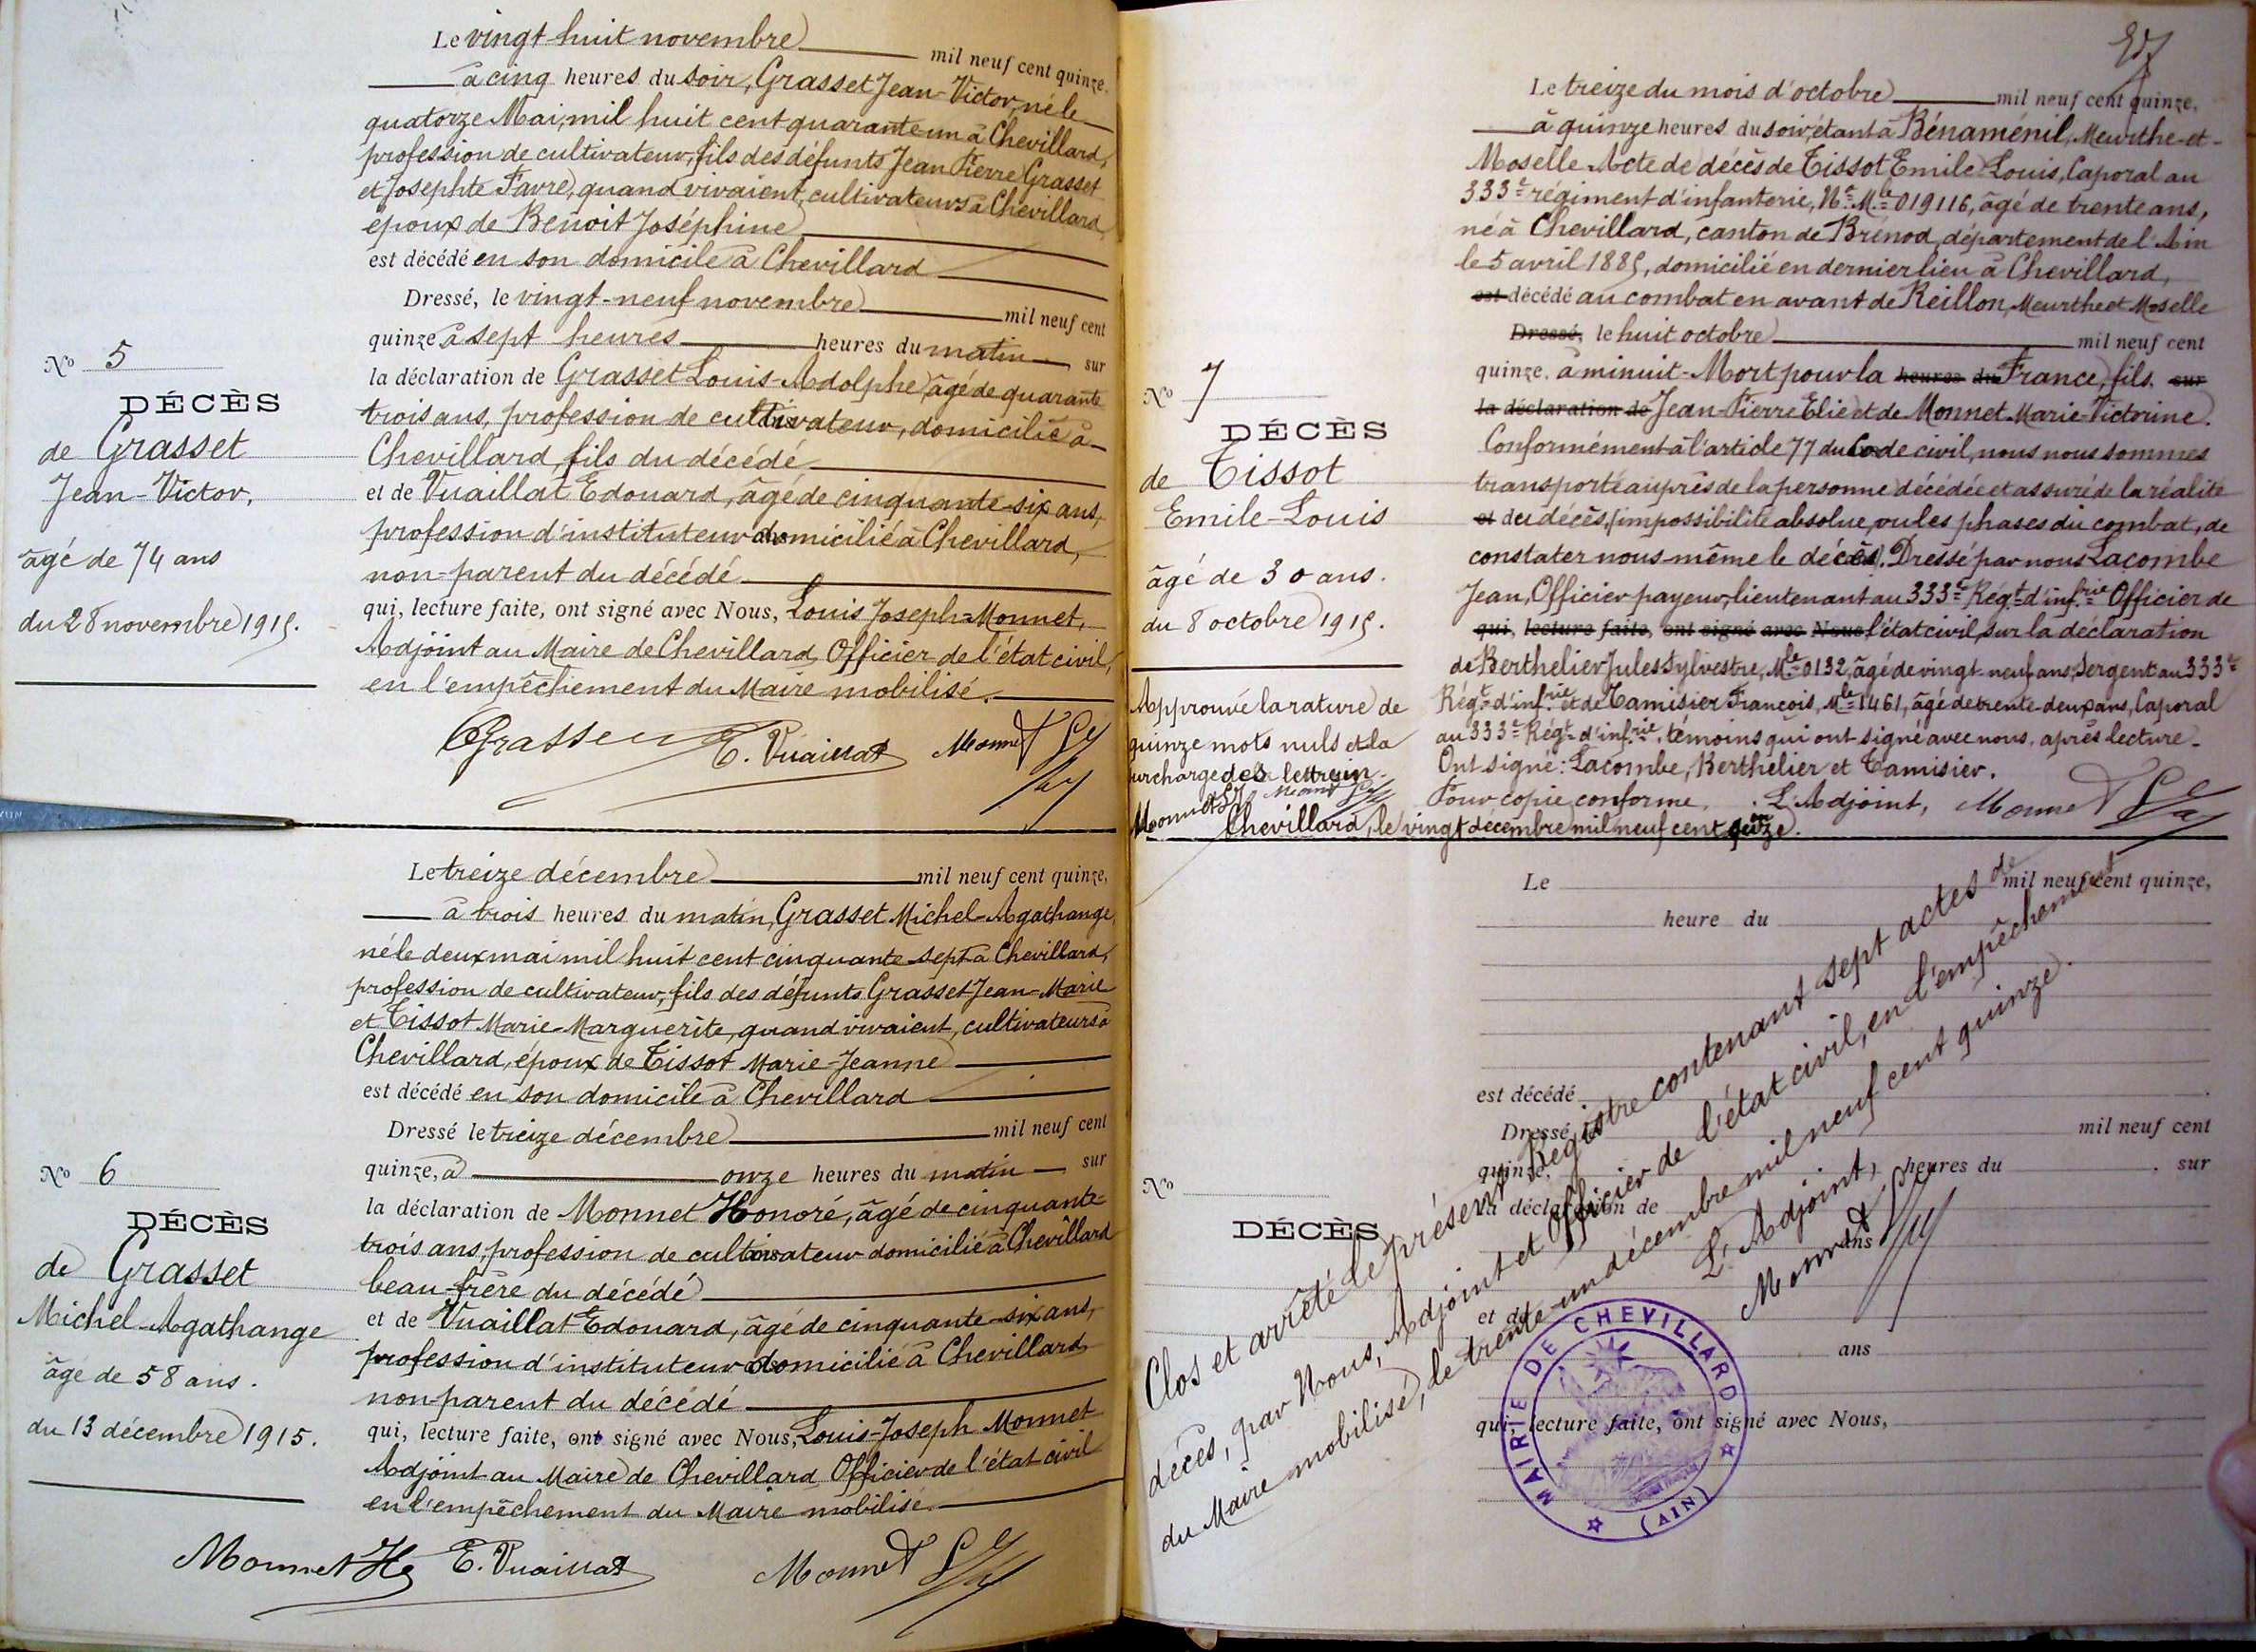 Le vingt-huit novembre mil neuf cent quinze,
à cinq heures du soir, Grasset Jean-Victor, né le
quatorze Mai, mil huit cent quarante-un à Chevillard,
profession de cultivateur, fils des défunts Jean Pierre Grasset
et Josephte Favre, quand vivaient, cultivateurs à Chevillard,
époux de Benoit Joséphine
est décédé en son domicile à Chevillard
Dressé, le vingt-neuf novembre mil neuf cent
quinze à sept heures heures du matin sur
la déclaration de Grasset Louis-Adolphe âgé de quarante
trois ans, profession de cultivateur, domicilié à
Chevillard, fils du décédé
et de Vuaillat Edouard, âgé de cinquante-six ans,
profession d'instituteur domicilié à Chevillard,
non-parent du décédé
qui, lecture faite, ont signé avec Nous, Louis Joseph-Monnet,
Adjoint au Maire de Chevillard, Officier de l'état civil,
en l'empêchement du Maire mobilisé.
Grasset E. Vuaillat Monnet
No 5
DÉCÈS
de Grasset
Jean-Victor,
âgé de 74 ans
du 28 novembre 1915.
Le treize décembre mil neuf cent quinze,
à trois heures du matin, Grasset Michel-Agathange
né le deux mai mil huit cent cinquante-sept à Chevillard,
profession de cultivateur, fils des défunts Grasset Jean-Marie
et Tissot Marie-Marguerite, quand vivaient, cultivateurs à
Chevillard, époux de Tissot Marie-Jeanne
est décédé en son domicile à Chevillard
Dressé le treize décembre mil neuf cent
quinze, à onze heures du matin sur
la déclaration de Monnet Honoré, âgé de cinquante-
trois ans, profession de cultivateur domicilié à Chevillard
beau-frère du décédé
et de Vuaillat Edouard, âgé de cinquante-six ans,
profession d'instituteur domicilié à Chevillard
non-parent du décédé
qui, lecture faite, ont signé avec Nous, Louis-Joseph Monnet
Adjoint au Maire de Chevillard Officier de l'état civil
en l'empêchement du Maire mobilisé.
Monnet He E. Vuaillat Monnet
No 6
DÉCÈS
de Grasset
Michel-Agathange
âgé de 58 ans.
du 13 décembre 1915.
Le treize du mois d'octobre mil neuf cent quinze,
à quinze heures du soir, étant à Bénaménil, Meurthe-et-
Moselle Acte de décès de Tissot Emile-Louis, Caporal au
333e régiment d'infanterie, No Mle 019116, âgé de trente ans,
né à Chevillard, canton de Brénod, département de l'Ain
le 5 avril 1885, domicilié en dernier lieu à Chevillard,
est décédé au combat en avant de Reillon, Meurthe et Moselle
Dressé, le huit octobre mil neuf cent
quinze. à minuit-Mort pour la heures du France, fils. sur
la déclaration de Jean-Pierre Elie et de Monnet Marie-Victorine.
Conformément à l'article 77 du Code civil, nous nous sommes
transporté auprès de la personne décédée et assuré de la réalité
et du décès, (impossibilité absolue, vu les phases du combat, de
constater nous-même le décès). Dressé par nous Lacombe
Jean, Officier payeur, lieutenant au 333e Régt d'infrie Officier de
qui, lecture faite, ont signé avec Nous l'état civil, sur la déclaration
de Berthelier Jules Sylvestre, Mle 0132, âgé de vingt-neuf ans, Sergent au 333e
Régt d'infrie et de Tamisier François, Mle 1461, âgé de trente-deux ans, Caporal
au 333e Régt d'infrie, témoins qui ont signé avec nous, après lecture.
Ont signé: Lacombe, Berthelier et Tamisier.
Pour copie conforme. L'Adjoint, Monnet
Chevillard, le vingt décembre mil neuf cent quinze.
No 7
DÉCÈS
de Tissot
Emile-Louis
âgé de 30 ans.
du 8 octobre 1915.
Approuvé la rature de
quinze mots nuls et la
surcharge des lettres in.
Monnet Monnet
Le mil neuf cent quinze,
heure du
est décédé
Dressé mil neuf cent
quinze, heures du sur
la déclaration de
ans
et de
ans
qui, lecture faite, ont signé avec Nous,
No
DÉCÈS
Clos et arrêté le présent Registre contenant sept actes de
décès, par Nous, Adjoint et Officier de l'état civil, en l'empêchement
du Maire mobilisé, le trente-un décembre mil neuf cent quinze.
L'Adjoint,
Monnet
MAIRIE DE CHEVILLARD
(AIN)